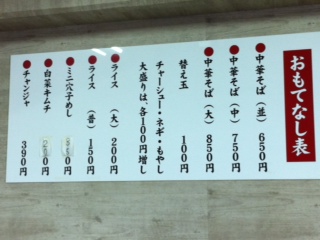 おもてなし表
●中華そば(並)650円
●中華そば(中)750円
●中華そば(大)850円
替え玉 100円
チャーシュー・ネギ・もやし
大盛りは、各100円増し
●ライス(大)200円
●ライス(普)150円
●ミニ穴子めし
●白菜キムチ
●チャンジャ 390円